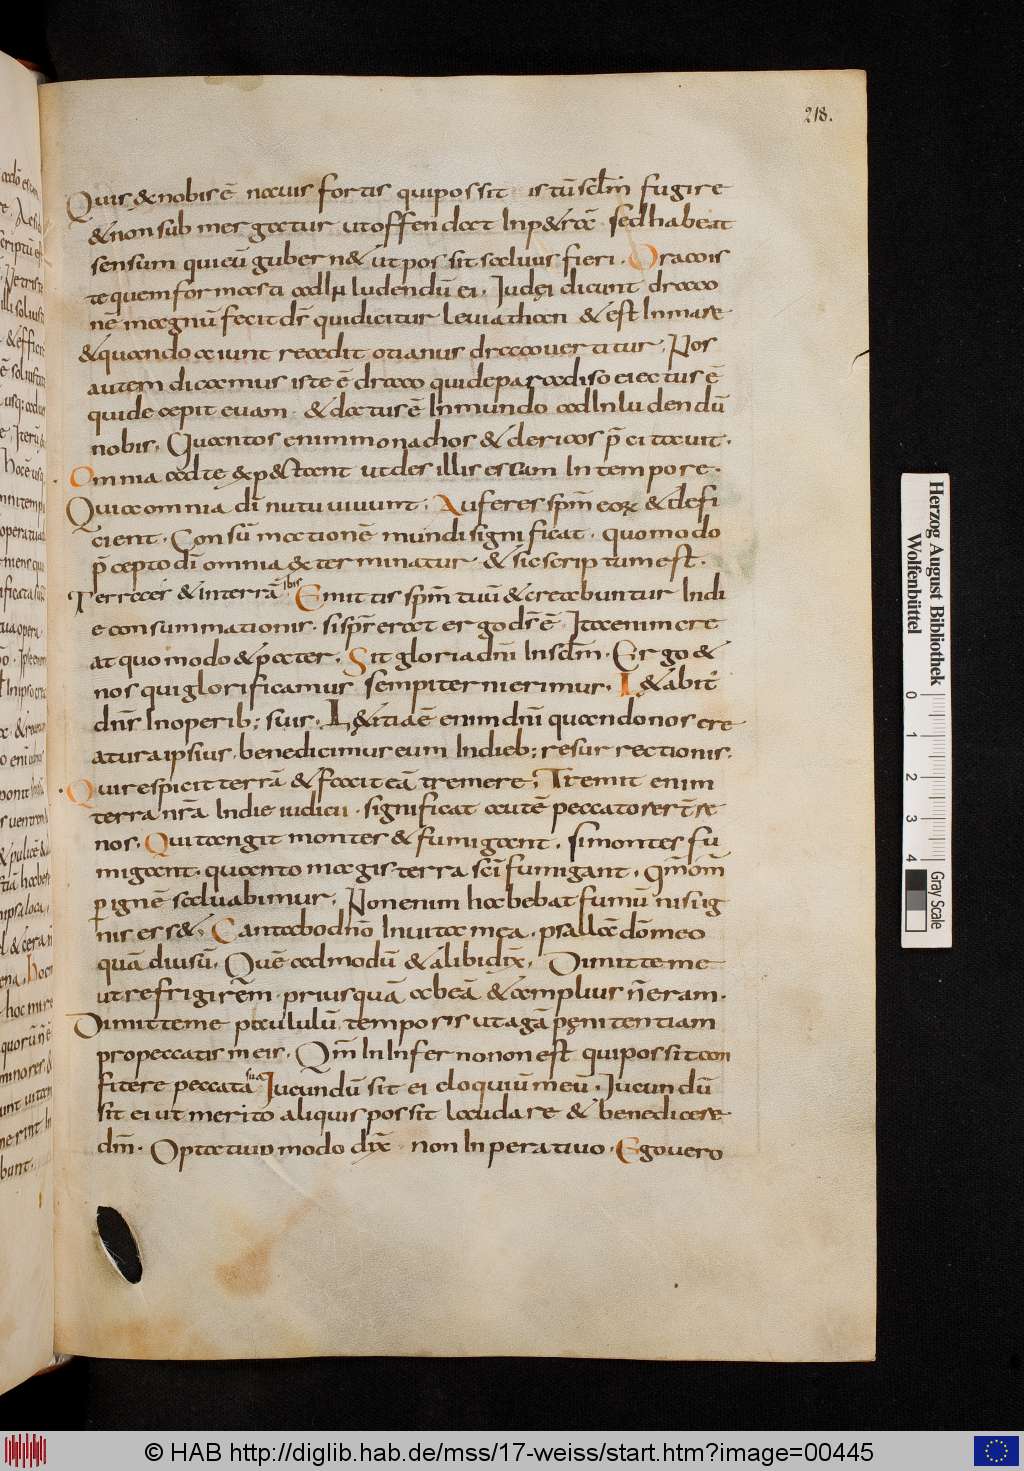 218.
Quis & nobis ē nauis fortis qui possit istū sclm̄ fugire
& non sub mergatur ut offendat In p&rā. sed habeat
sensum qui eū gubern& ut possit saluus fieri. Draco is
te quem formasti ad Inludendū ei. Iudęi dicunt draco
nē magnū fecit ds̄ qui dicitur leviathan & est In mare
& quando aiunt recedit ocianus draco uertitur. Nos
autem dicamus iste ē draco qui de paradiso eiectus ē
qui decepit euam. & datus ē In mundo ad Inludendū
nobis. Quantos enim monachos & clericos p̄citauit.
Omnia ad te exp&ctant ut des illis escam In tempore.
Quia omnia dī nutu uiuunt. Auferes spm̄ eorum & defi
cient. Consūmationē mundi significat. quomodo
p̄cepto dī omnia determinatur. & sic scriptum est.
Terra es & in terrā ibis Emittis spm̄ tuū & creabuntur In di
e consummationis. si sps̄ creat ergo ds̄ ē. Ita enim cre
at quomodo & pater. Sit gloria dnī In sclm̄. Ergo &
nos qui glorificamus sempiterni erimus. L&abit̄
dns̄ In operib; suis. L&itia ē enim dnī quando nos cre
atura ipsius. benedicimus eum In dieb; resurrectionis.
Qui respicit terrā & facit eā tremere; Tremit enim
terra nr̄a In die iudicii. significat autē peccatores t̄re
nos. Qui tangit montes & fumigant. si montes fu
migant. quanto magis terra sci fumigant. Qm̄ om̄
p ignē saluabimur. Non enim habebat fumū nisi ig
nis ess&. Cantabo dnō In uita mea. psallā dō meo
quādiu sū. Quē admodū & alibi dix̄. Dimitte me
ut refrigirēm. priusquā abeā & amplius n̄ eram.
Dimitte me paululū temporis ut agā pęnitentiam
pro peccatis meis. Qm̄ In Inferno non est qui possit con
fitere peccata sua Iucundū sit ei eloquiū meū. Iucundū
sit ei ut merito aliquis possit laudare & benedicere
dm̄. Optatiuo modo dix̄ non Inperatiuo. Ego uero
Herzog August Bibliothek
Wolfenbüttel
0 1 2 3 4
Gray Scale
© HAB http://diglib.hab.de/mss/17-weiss/start.htm?image=00445